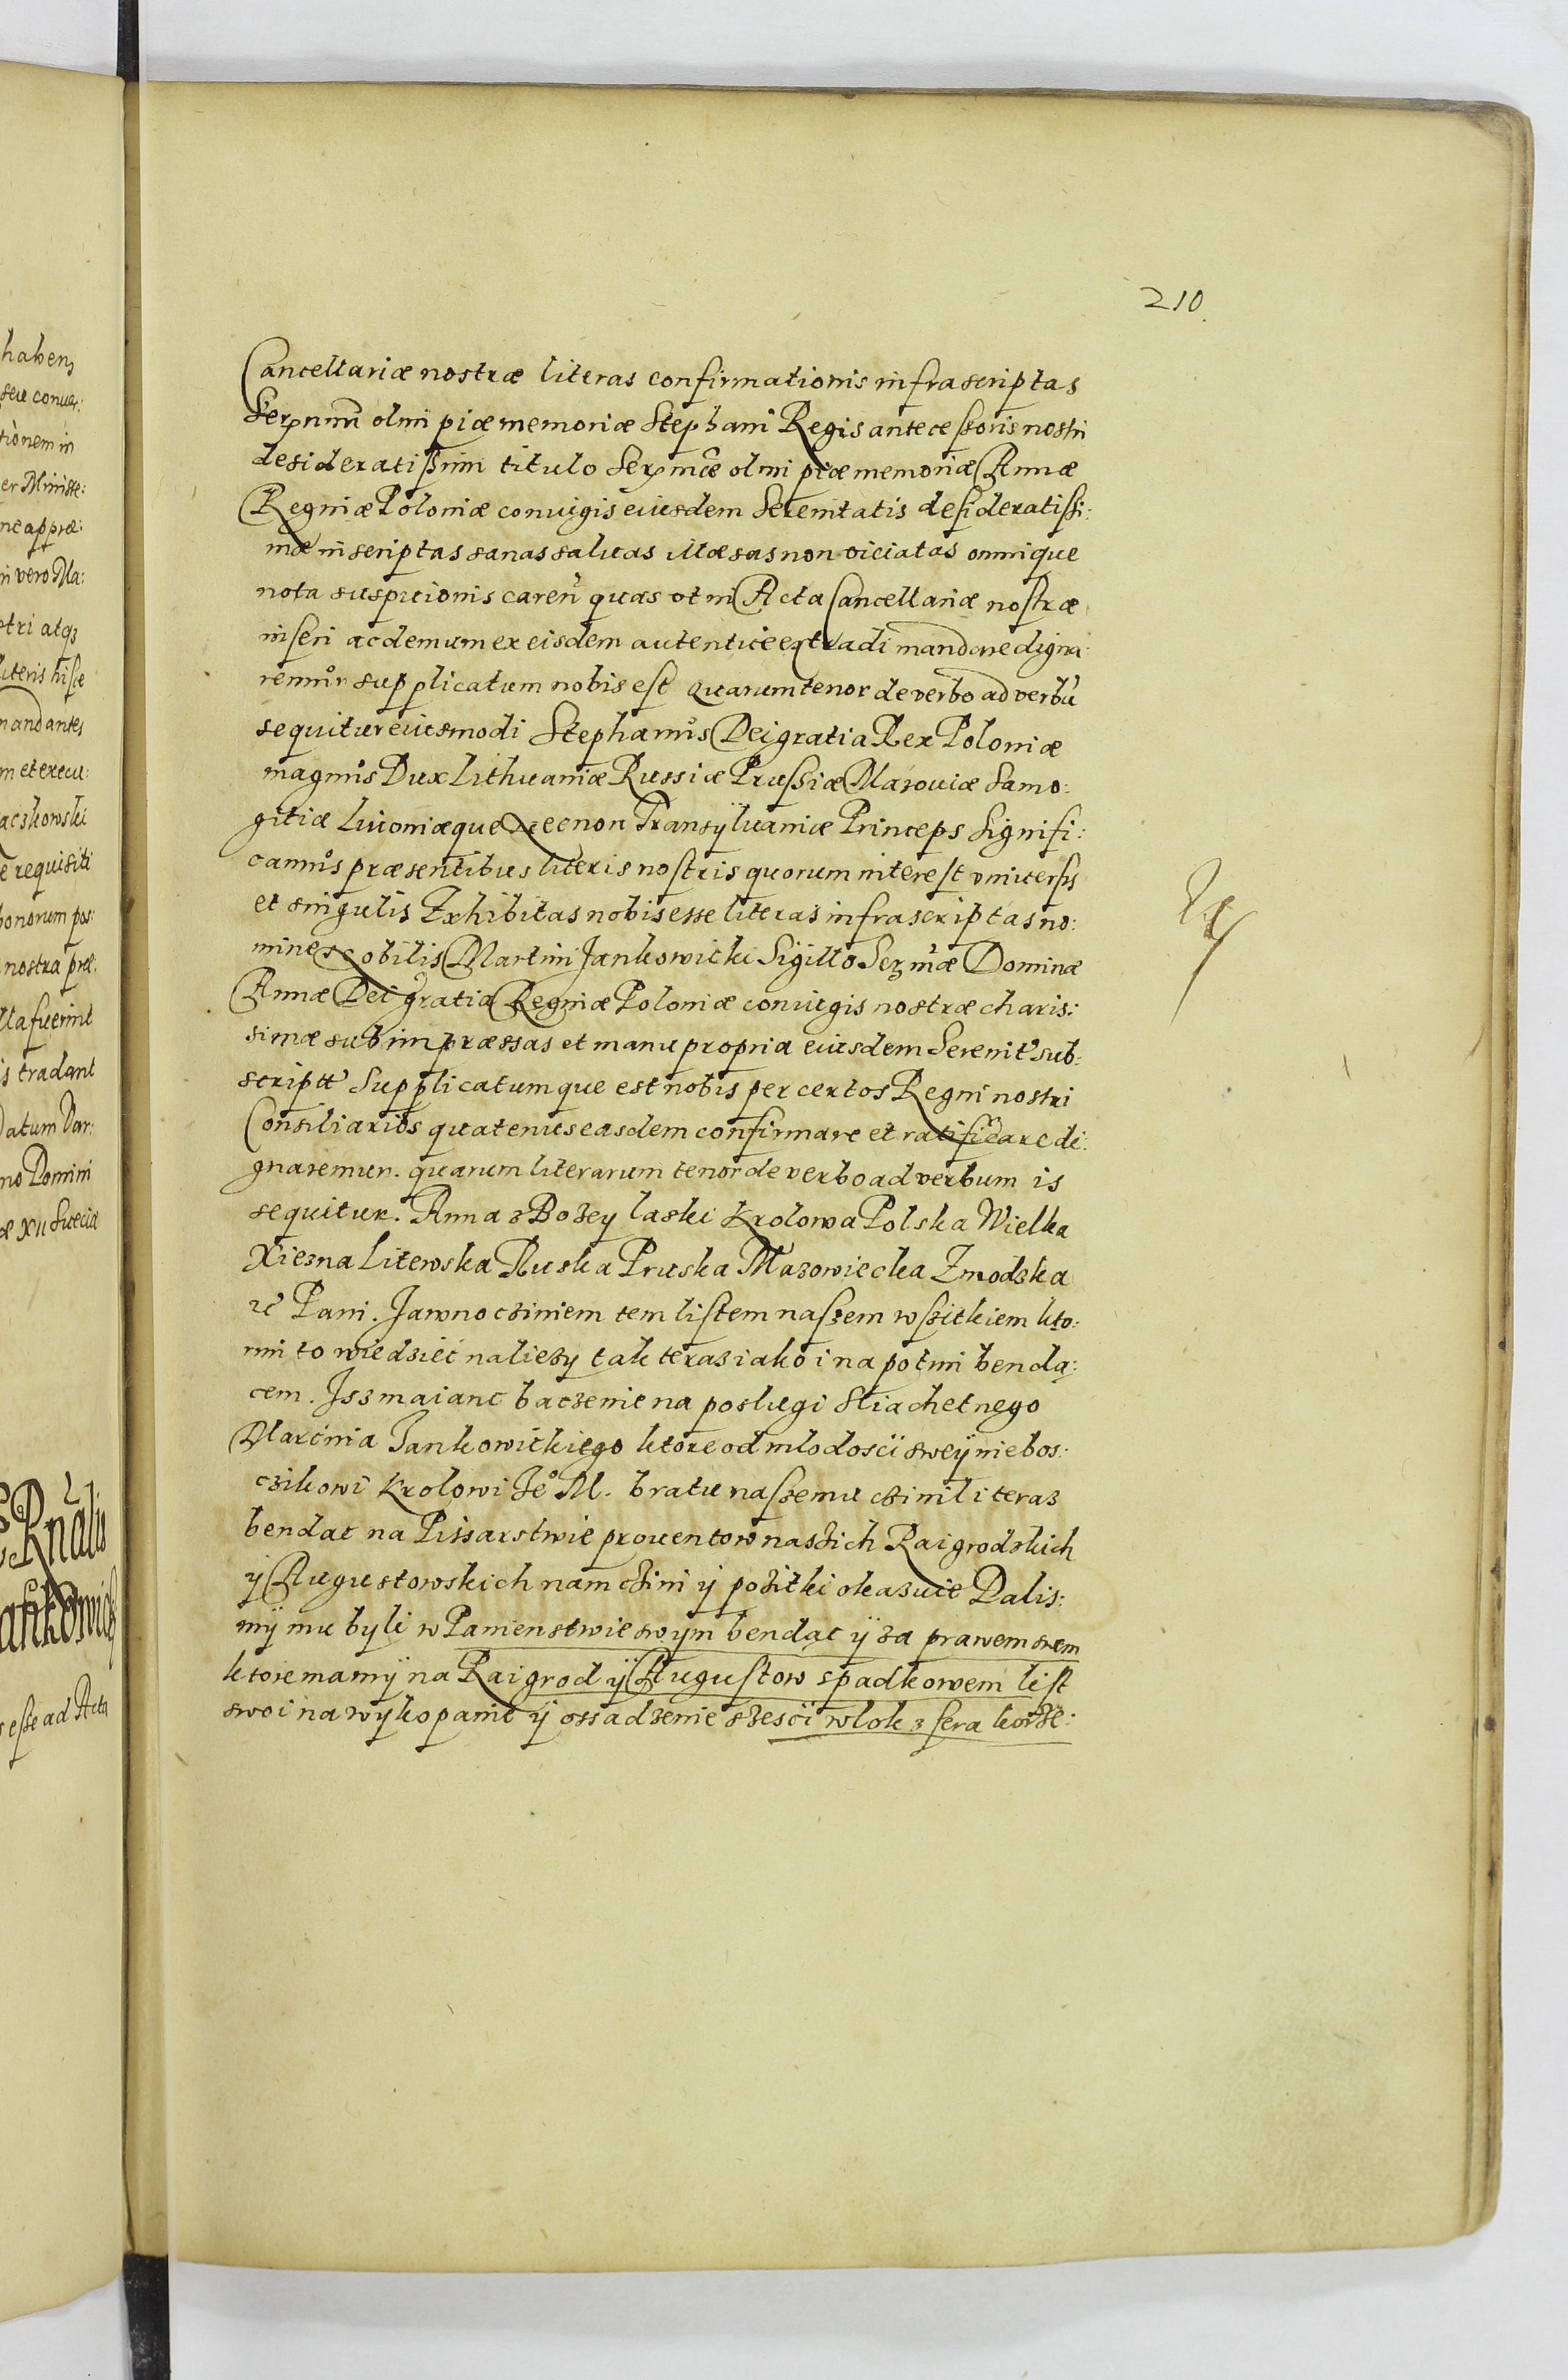 210.
Cancellariæ nostræ literas confirmationis infrascriptas
olim piæ memoriæ Stephani Regis antecessoris nostri
desideratissimi titulo olim piæ memoriæ Annæ
Reginæ Poloniæ coniugis eiusdem Serenitatis desideratissi:
mæ inscriptas sanas saluas illæsas non viciatas omnique
nota suspicionis careñ quas vt in Acta Cancellariæ nostræ
inseri ac demum ex eisdem autentice extradi mandare digna:
remur supplicatum nobis est quarum tenor de verbo ad verbũ
sequitur eiusmodi Stephanus Dei gratia Rex Poloniæ
magnus Dux Lithuaniæ Russiæ Prussiæ Masouiæ Samo:
gitiæ Liuoniæque necnon Transÿluaniæ Princeps Signifi:
camus præsentibus literis nostris quorum interest vniuersis
et singulis Exhibitas nobis esse literas infrascriptas no:
mine Nobilis Martini Jankowicki Sigillo Sermæ Dominæ
Annæ Dei gratia Reginæ Poloniæ coniugis nostræ charis:
simæ subimpræssas et manu propria eiusdem Serenit sub:
script Supplicatumque est nobis per certos Regni nostri
Consiliarios quatenus easdem confirmare et ratificare di:
gnaremur. quarum literarum tenor de verbo ad verbum is
sequitur. Anna z Bozey laski Krolowa Polska Wielka
Xiezna Litewska Ruska Pruska Mazowiecka Zmodzka
Pani. Jawno cziniem tem listem naszem wszitkiem kto:
rim to wiedzieć naliezy tak teraz iako i na potim benda:
cem. Jsz maianc baczenie na poslugi Sliachetnego
Marcina Jankowickiego ktore od mlodosci sweÿ niebos:
czikowi Krolowi Je° M. bratu naszemu czinil i teraz
bendac na Pissarstwie prouentow naszich Raigrodzkich
ÿ Augustowskich nam czini ÿ pozitki okazuie Dalis:
mÿ mu byli w Panienstwie swym bendąc ÿ za prawem swem
ktore mamÿ na Raigrod ÿ Augustow spadkowem list
swoi na wykopanie ÿ ossadzenie szesci wlok z fera korze: